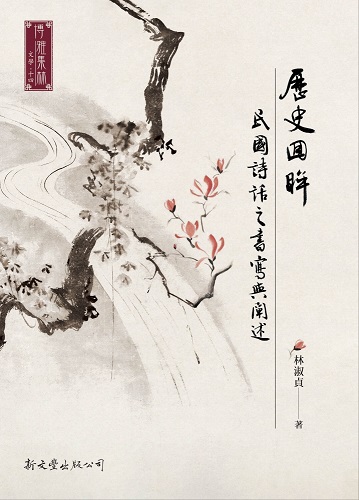 歷史回眸
民國詩話之書寫與闡述
林淑貞──著
博雅集林
文學.十四
新文豐出版公司